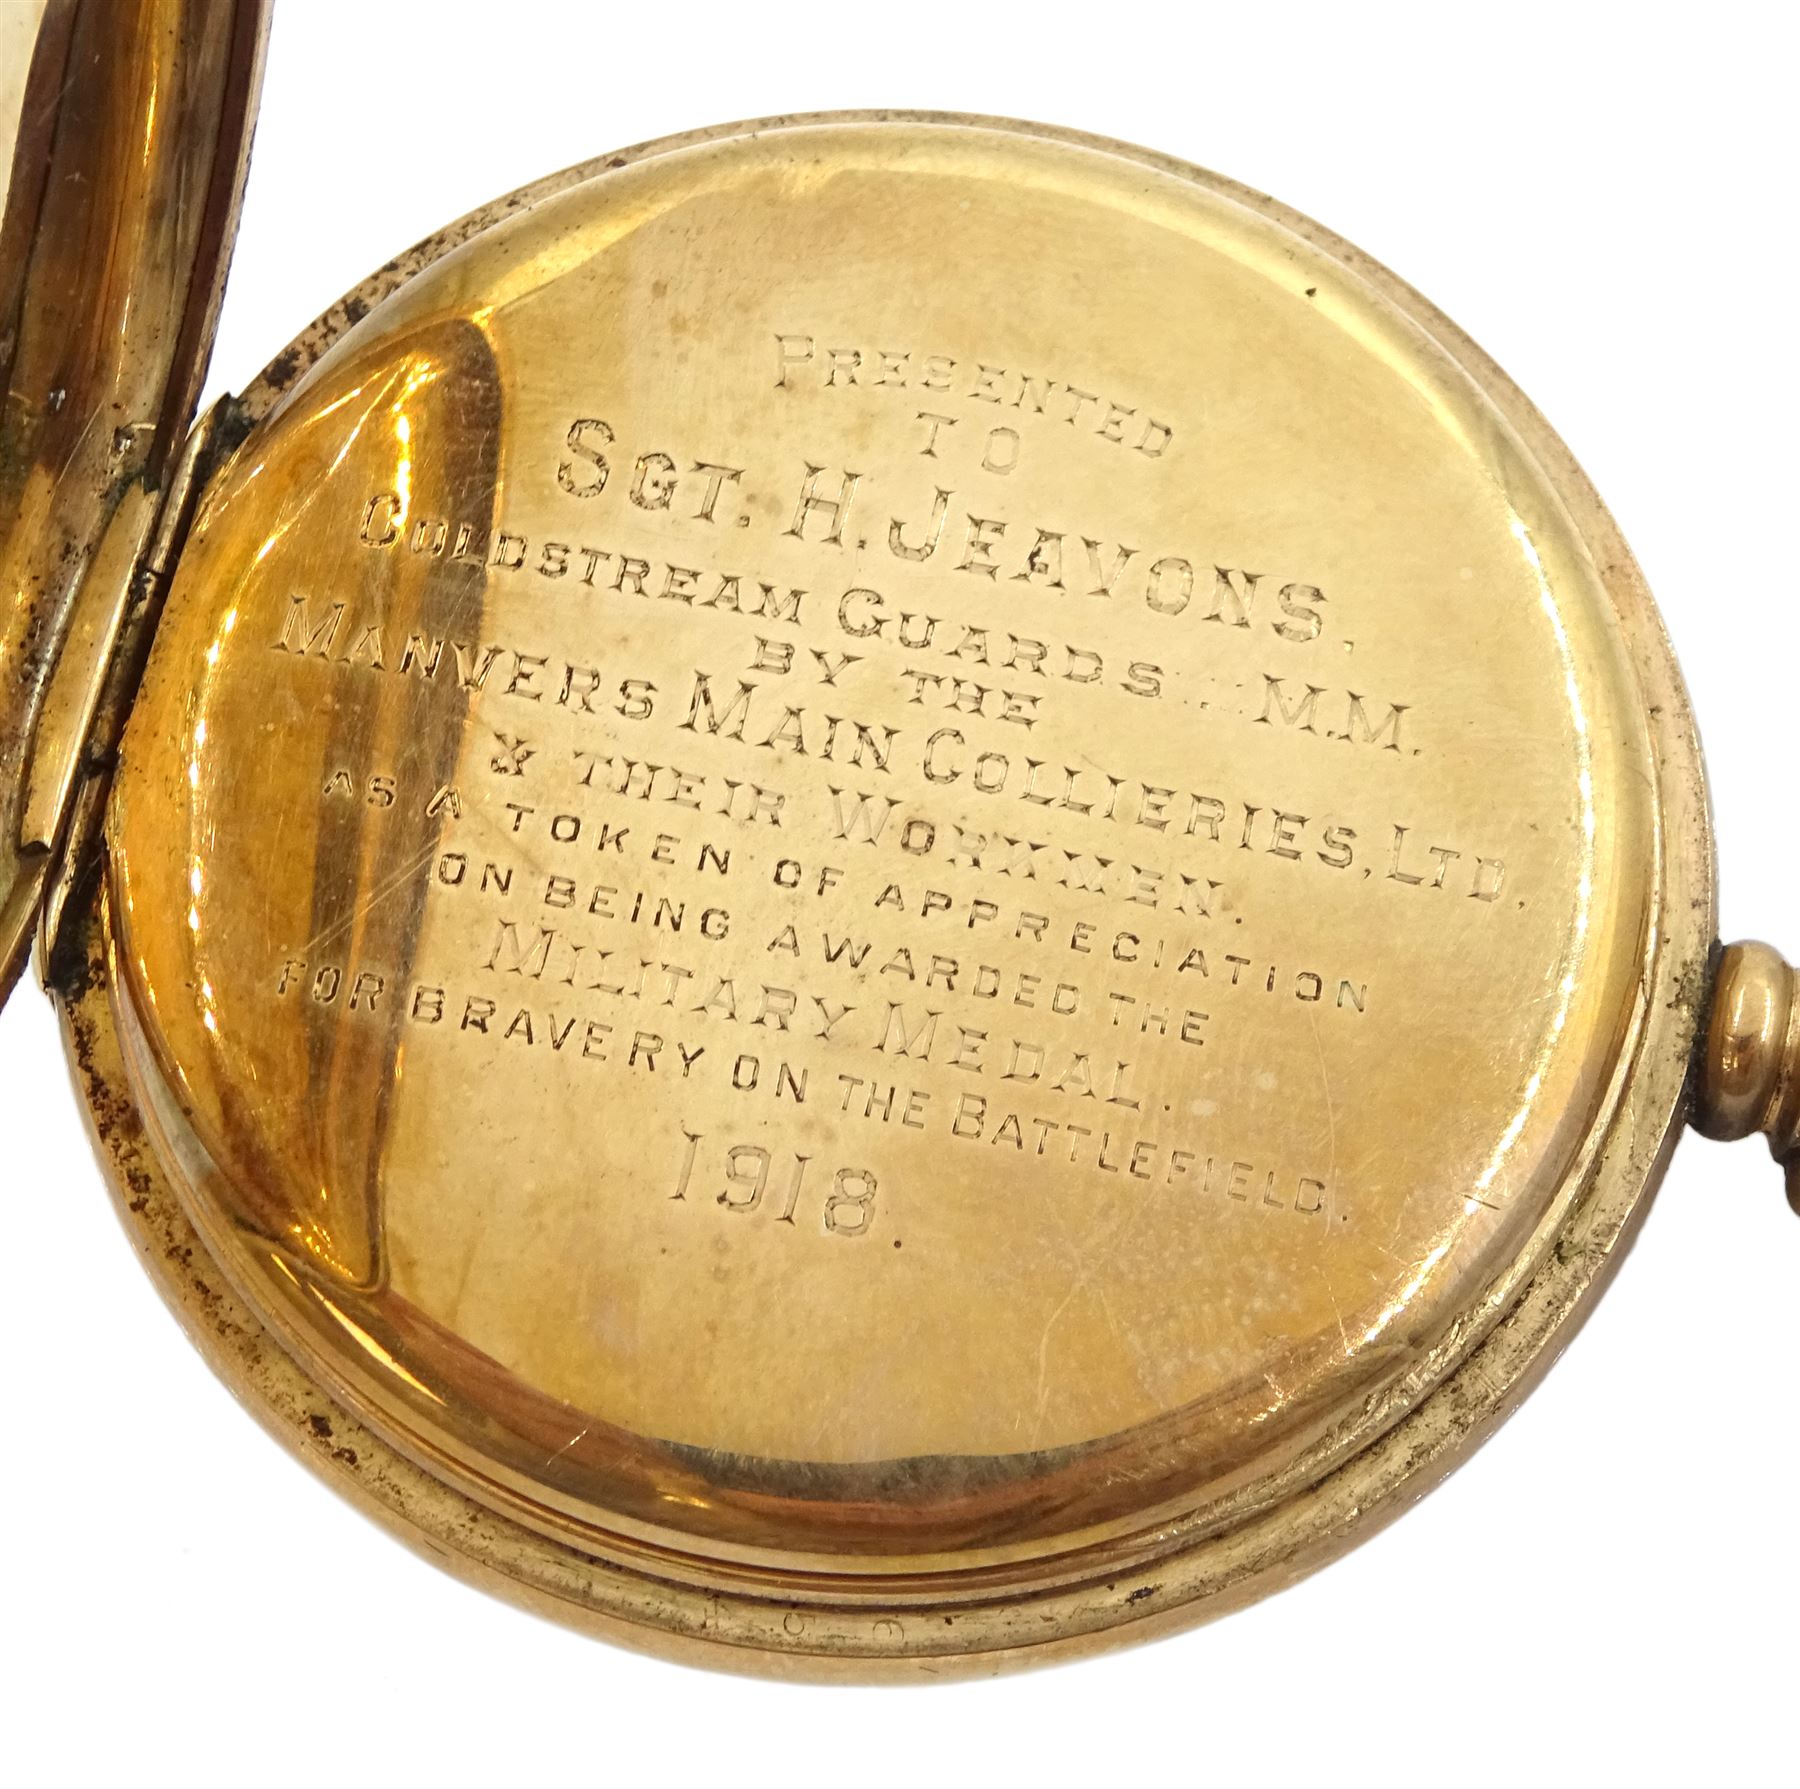 PRESENTED
TO
SGT. H. JEAVONS.
COLDSTREAM GUARDS ... M.M.
BY THE
MANVERS MAIN COLLIERIES, LTD.
& THEIR WORKMEN.
AS A TOKEN OF APPRECIATION
ON BEING AWARDED THE
MILITARY MEDAL.
FOR BRAVERY ON THE BATTLEFIELD.
1918.